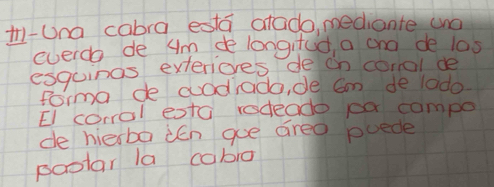 III-Una cabra está atada, mediante una
cuerda de 4m de longitud, a una de las
esquinas exteriores de un corral de
forma de cuadrado, de 6m de lado.
El corral esta rodeado por campo
de hierba ¿En que área puede
pastar la cabra